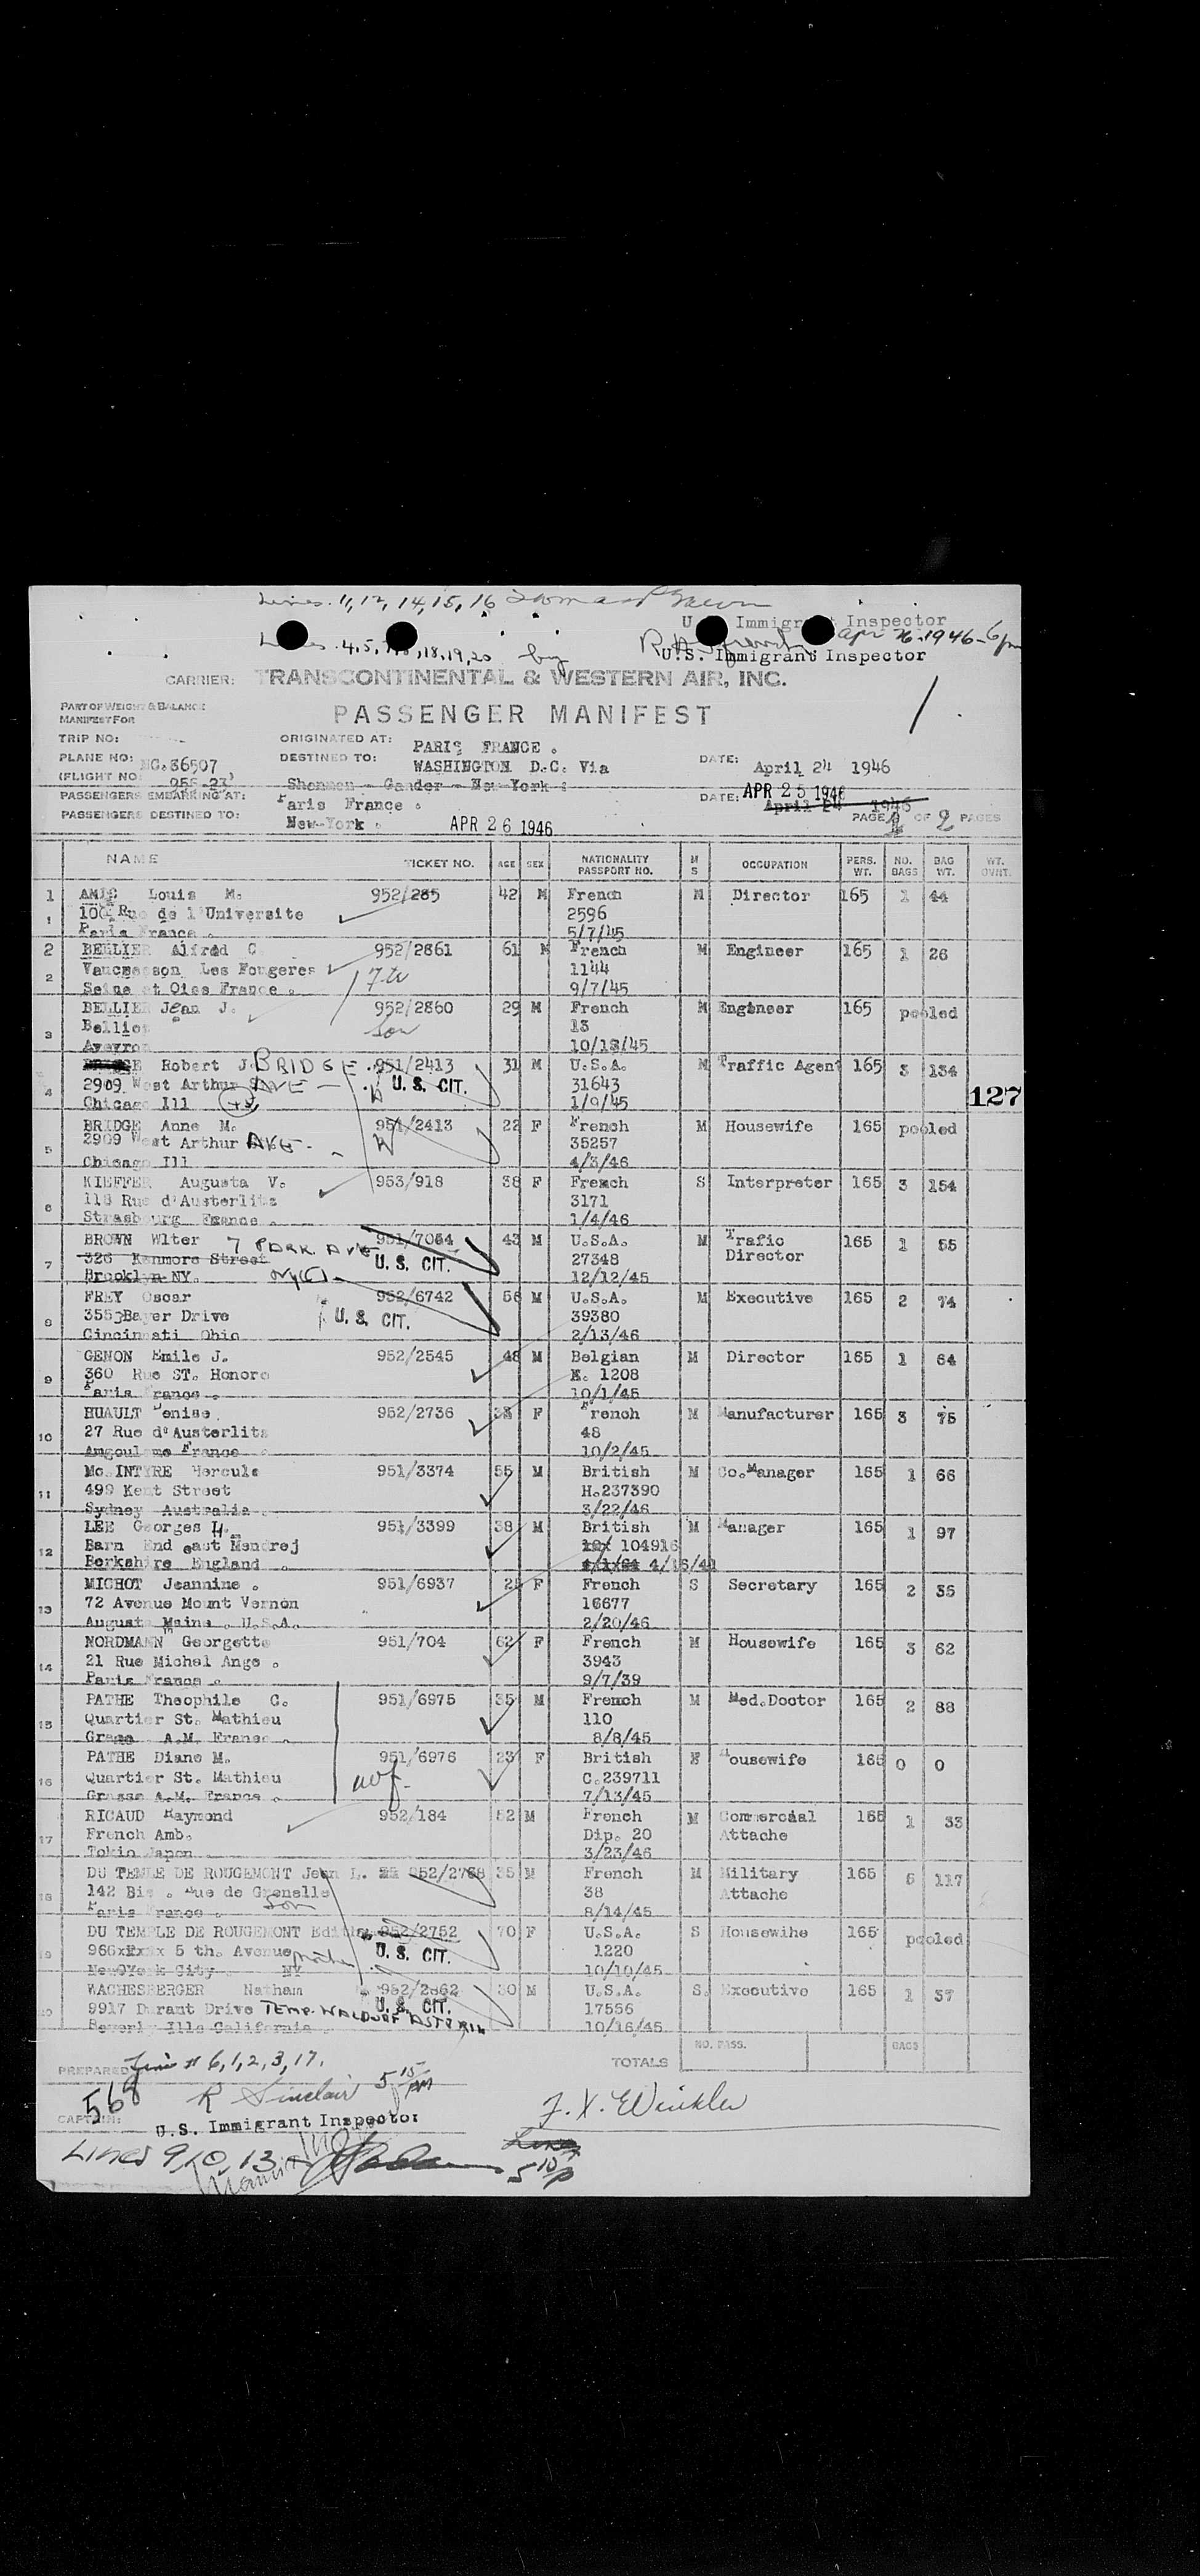 Lines 11, 12, 14, 15, 16
U. Immigrant Inspector
Lines 4, 5, 18, 19, 20 by Apr 26-1946-6pm
U.S. Immigrant Inspector
CARRIER: TRANSCONTINENTAL & WESTERN AIR, INC.
PART OF WEIGHT & BALANCE
MANIFEST FOR
PASSENGER MANIFEST
TRIP NO:
ORIGINATED AT: PARIS FRANCE .
PLANE NO: NC.86507
DESTINED TO: WASHINGTON D.C. Via
DATE: April 24 1946
(FLIGHT NO. 955-23)
Shannon - Gander - New-York :
PASSENGERS EMBARKING AT: Paris France .
DATE: APR 25 1946
April 24 1946
PASSENGERS DESTINED TO: New-York . APR 26 1946
PAGE OF 2 PAGES
NAME TICKET NO. AGE SEX NATIONALITY PASSPORT NO. M S OCCUPATION PERS. WT. NO. BAGS BAG WT. WT. OVNT.
1 AMIC Louis M. 952/285 42 M French M Director 165 1 44
100 Rue de l'Universite 2596
Paris France . 5/7/45
2 BELLIER Alfred C 952/2861 61 M French M Engineer 165 1 26
Vaucresson Les Fougeres 1144
Seine et Oise France . 9/7/45
BELLIER Jean J. 952/2860 29 M French M Engeneer 165 pooled
3 Belliot son 13
Aveyron 10/18/45
Robert J. BRIDGE 951/2413 31 M U.S.A. M Traffic Agent 165 3 134
4 2909 West Arthur AVE - U. S. CIT. 31643
Chicago Ill 1/9/45
127
BRIDGE Anne M. 951/2413 22 F French M Housewife 165 pooled
5 2909 West Arthur AVE - 35257
Chicago Ill 4/3/46
KIEFFER Augusta V. 953/918 38 F French S Interpreter 165 3 154
6 118 Rue d'Austerlitz 3171
Strasbourg France . 1/4/46
BROWN Wlter 7 PARK AVE 951/7054 43 M U.S.A. M Trafic 165 1 55
7 326 Kenmore Street U. S. CIT. 27348 Director
Brooklyn NY. NYC 12/12/45
FREY Oscar 952/6742 56 M U.S.A. M Executive 165 2 74
8 3555 Bayer Drive U. S. CIT. 39380
Cincinnati Ohio 2/13/46
GENON Emile J. 952/2545 48 M Belgian M Director 165 1 64
9 360 Rue ST. Honore E. 1208
Paris France . 10/1/45
HUAULT Denise 952/2736 F French M Manufacturer 165 3 75
10 27 Rue d'Austerlitz 48
Angouleme France 10/2/45
Mc INTYRE Hercule 951/3374 55 M British M Co.Manager 165 1 66
11 499 Kent Street H.237390
Sydney Australia . 3/22/46
LEE Georges H. 951/3399 38 M British M Manager 165 1 97
12 Barn End east Hendrej 104916
Berkshire England . 4/16/41
MICHOT Jeannine . 951/6937 F French S Secretary 165 2 35
13 72 Avenue Mount Vernon 16677
Augusta Maine . U.S.A. 2/20/46
NORDMANN Georgette 951/704 62 F French M Housewife 165 3 62
14 21 Rue Michel Ange . 3943
Paris France . 9/7/39
PATHE Theophile C. 951/6975 35 M French M Med.Doctor 165 2 88
15 Quartier St. Mathieu 110
Grasse A.M. France . 8/8/45
PATHE Diane M. 951/6976 23 F British Housewife 165 0 0
16 Quartier St. Mathieu C.239711
Grasse A.M. France . 7/13/45
RICAUD Raymond 952/184 52 M French M Commercial 165 1 33
17 French Amb. Dip. 20 Attache
Tokio Japon 3/23/46
DU TEMLE DE ROUGEMONT Jean L. 952/2768 35 M French M Military 165 6 117
18 142 Bis . Rue de Grenelle 38 Attache
Paris France . Son 8/14/45
DU TEMPLE DE ROUGEMONT Edith 952/2752 70 F U.S.A. S Housewihe 165 pooled
19 5 th. Avenue mother U. S. CIT. 1220
New York City NY 10/10/45
WACHESBERGER Natham 952/2862 30 M U.S.A. S. Executive 165 1 37
20 9917 Durant Drive TEMP. WALDORF ASTORIA U. S. CIT. 17556
Beverly Ills California . 10/16/45
NO. PASS. BAGS
PREPARED Line # 6, 1, 2, 3, 17. TOTALS
568 R Sinclair 5 15 PM
CAPTAIN: U.S. Immigrant Inspector F. X. Winkler
Lines 9, 10, 13
5 10 P